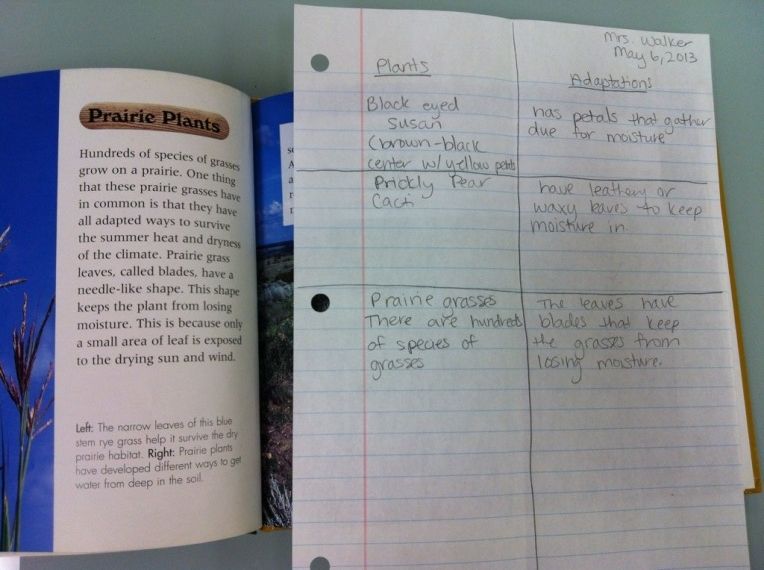 Prairie Plants
Hundreds of species of grasses
grow on a prairie. One thing
that these prairie grasses have
in common is that they have
all adapted ways to survive
the summer heat and dryness
of the climate. Prairie grass
leaves, called blades, have a
needle-like shape. This shape
keeps the plant from losing
moisture. This is because only
a small area of leaf is exposed
to the drying sun and wind.
Left: The narrow leaves of this blue
stem rye grass help it survive the dry
prairie habitat. Right: Prairie plants
have developed different ways to get
water from deep in the soil.
Mrs. Walker
May 6, 2013
Plants
Adaptations
Black eyed
Susan
(brown-black
center w/ yellow petals
has petals that gather
due for moisture
Prickly Pear
Cacti
have leathery or
waxy leaves to keep
moisture in.
Prairie grasses
There are hundreds
of species of
grasses
The leaves have
blades that keep
the grasses from
losing moisture.